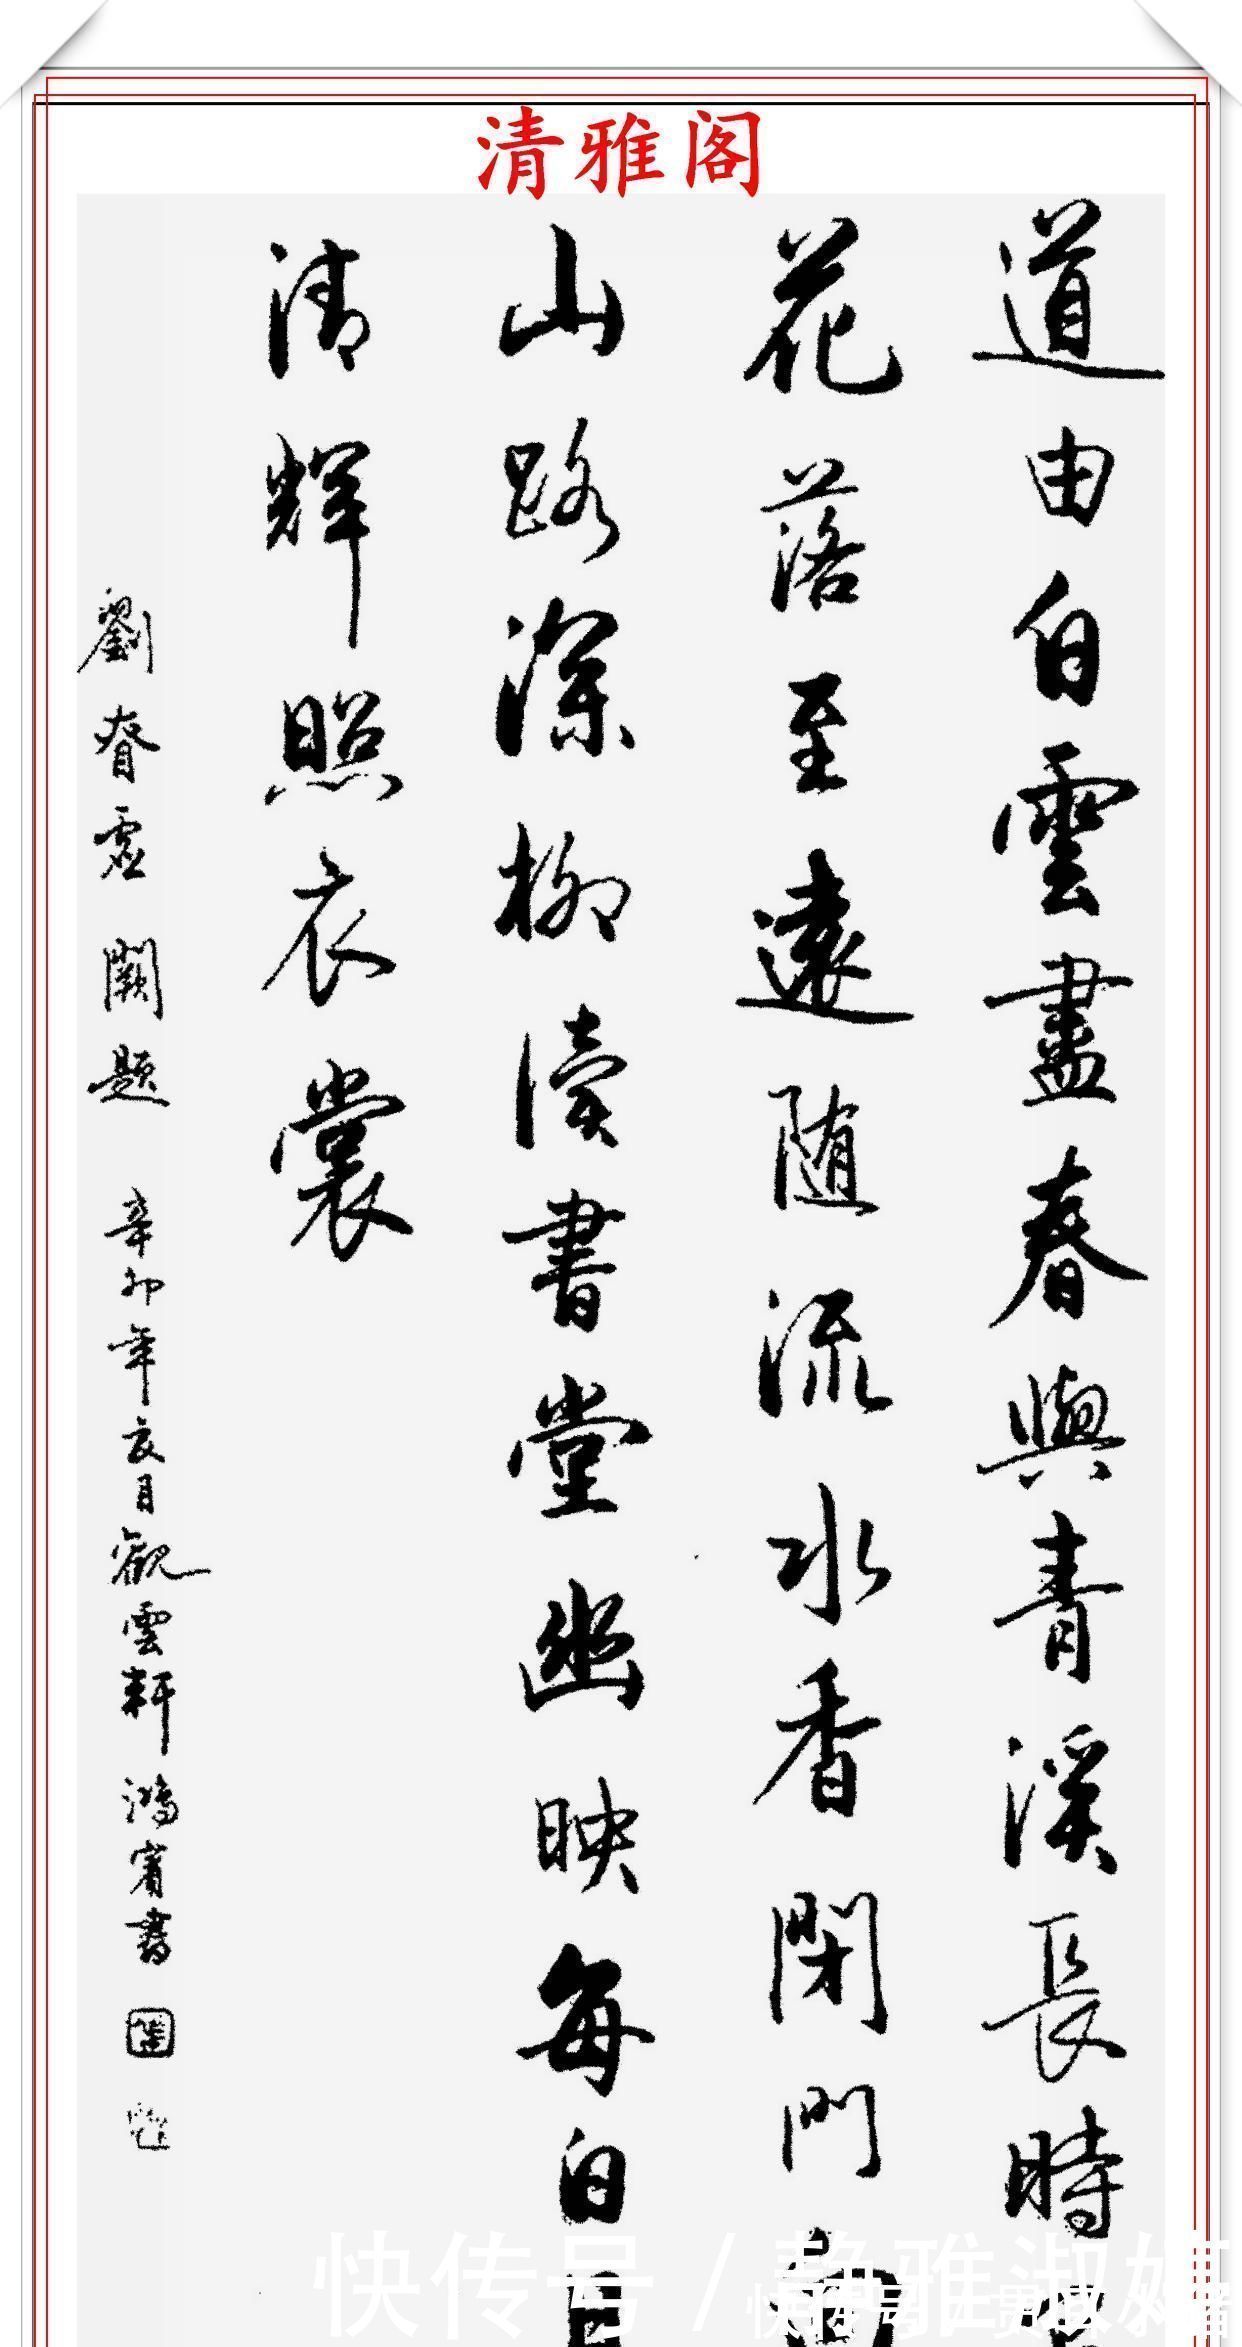 清雅阁
道由白雲盡春與青溪長時
花落至遠随流水香閑門向
山路深柳讀書堂幽映每白日
清輝照衣裳
劉眘虚 闕題 辛卯年亥月觀雲軒鴻賓書
快传号/静雅淑媛
快传号/